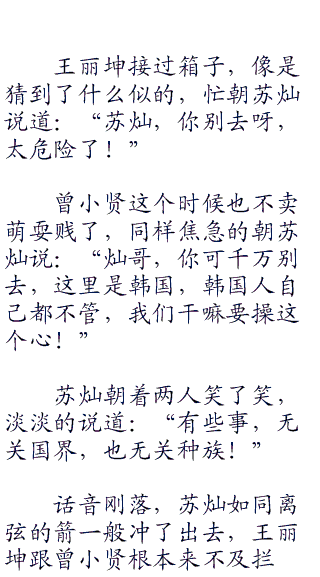 王丽坤接过箱子，像是
猜到了什么似的，忙朝苏灿
说道：“苏灿，你别去呀，
太危险了！”
曾小贤这个时候也不卖
萌耍贱了，同样焦急的朝苏
灿说：“灿哥，你可千万别
去，这里是韩国，韩国人自
己都不管，我们干嘛要操这
个心！”
苏灿朝着两人笑了笑，
淡淡的说道：“有些事，无
关国界，也无关种族！”
话音刚落，苏灿如同离
弦的箭一般冲了出去，王丽
坤跟曾小贤根本来不及拦